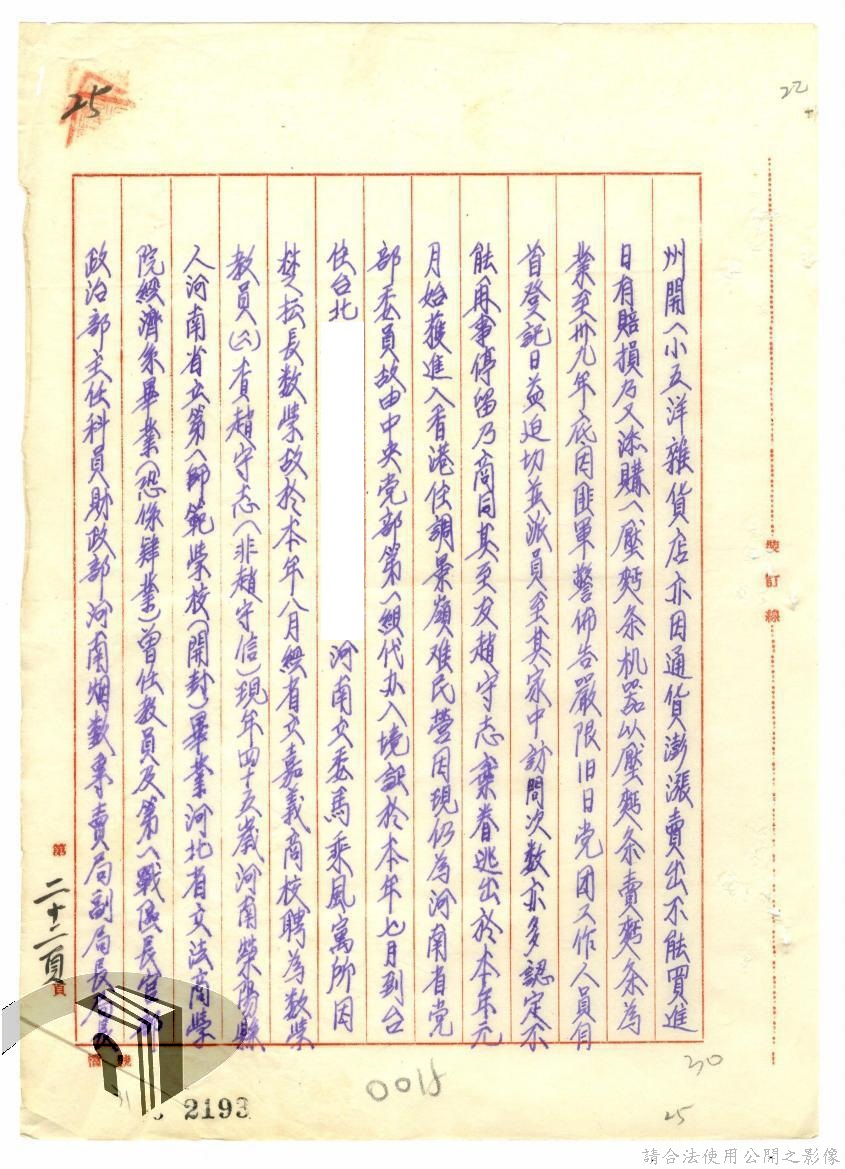 25
22
州開一小五洋雜貨店亦因通貨澎漲賣出不能買進
日有賠損乃又添購一壓麵条机器以壓麵条賣麵条為
業至卅九年底因匪軍警佈告嚴限旧日党团工作人員自
首登記日益迫切並派員至其家中訪問次数亦多認定不
能再事停留乃商同其至友趙守志棄眷逃出於本年元
月始獲進入香港住調景嶺难民營因現仍為河南省党
部委員故由中央党部第一組代办入境証於本年七月到台
住台北 河南立委馬乘風寓所因
樊坛長数柴故於本年八月經省立嘉義商校聘為数柴
教員(六)查趙守志(非趙守信)現年四十五歲河南榮陽縣
人河南省立第一師範柴校(開封)畢業河北省立法商学
院經濟系畢業(恐係肄業)曾任教員及第一戰區長官部
政治部主任科員財政部河南烟欵專賣局副局長
裝訂線
第二十二頁
頁
0018
30
25
2193
請合法使用公開之影像